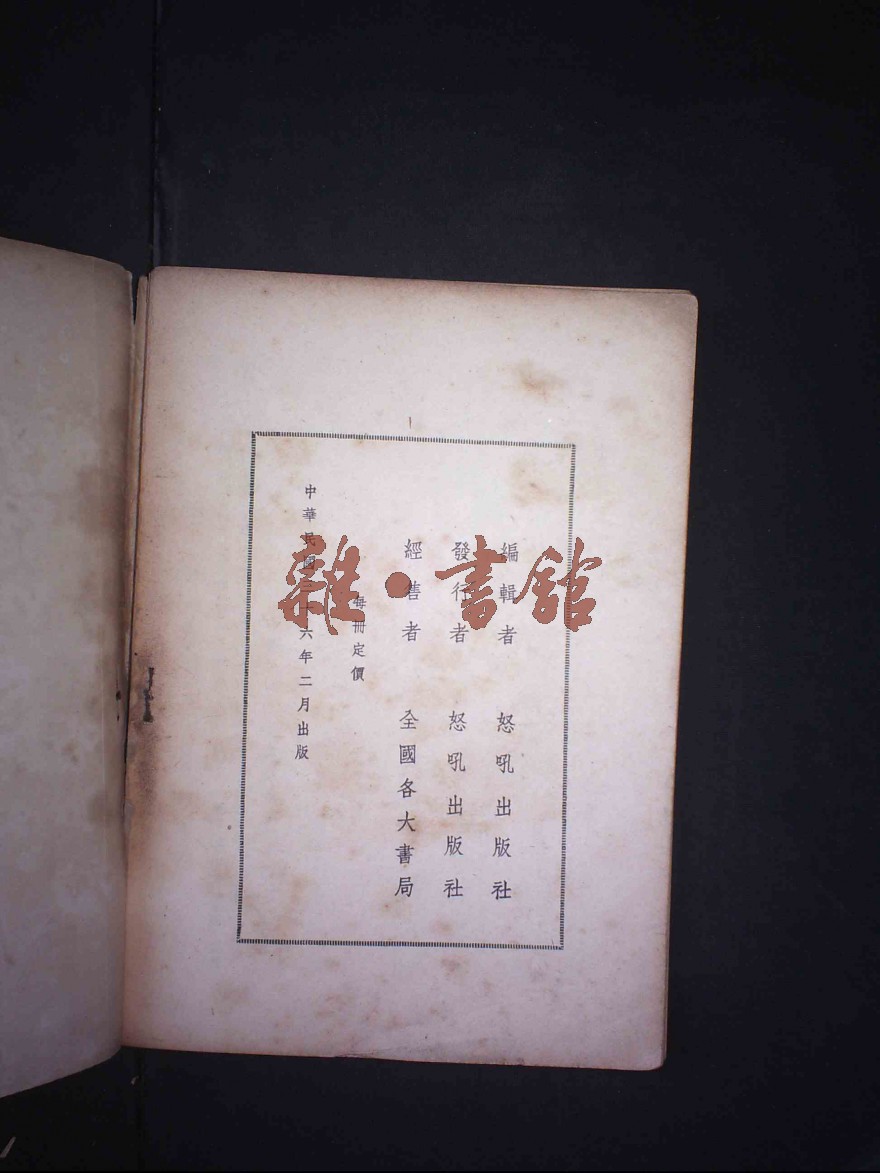 編輯者 怒吼出版社
發行者 怒吼出版社
經售者 全國各大書局
每冊定價
中華民國三十六年二月出版
雜·書館